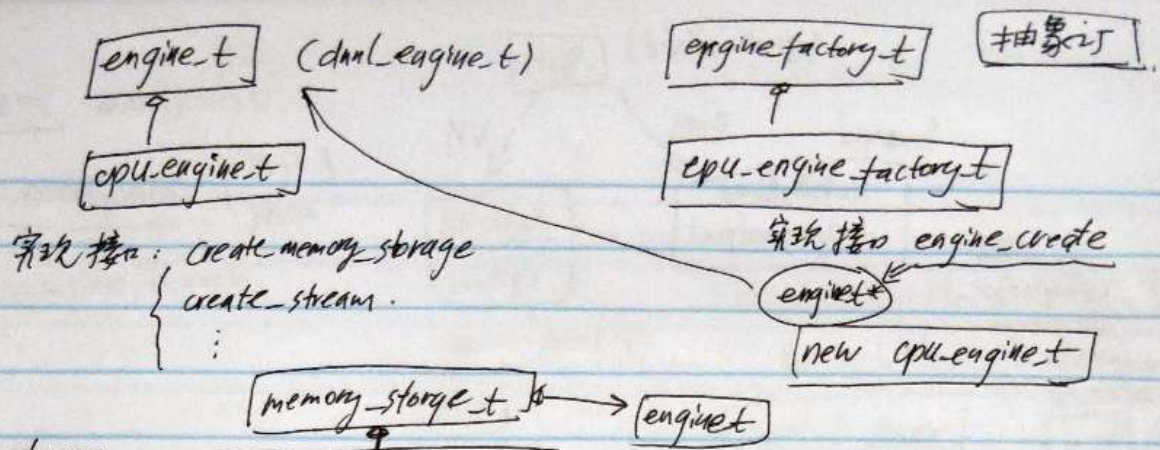 engine_t (dnnl_engine_t)
engine_factory_t
抽象
cpu_engine_t
cpu_engine_factory_t
实现接口: create_memory_storage
实现接口 engine_create
create_stream.
⋮
engine_t*
new cpu_engine_t
memory_storge_t
engine_t